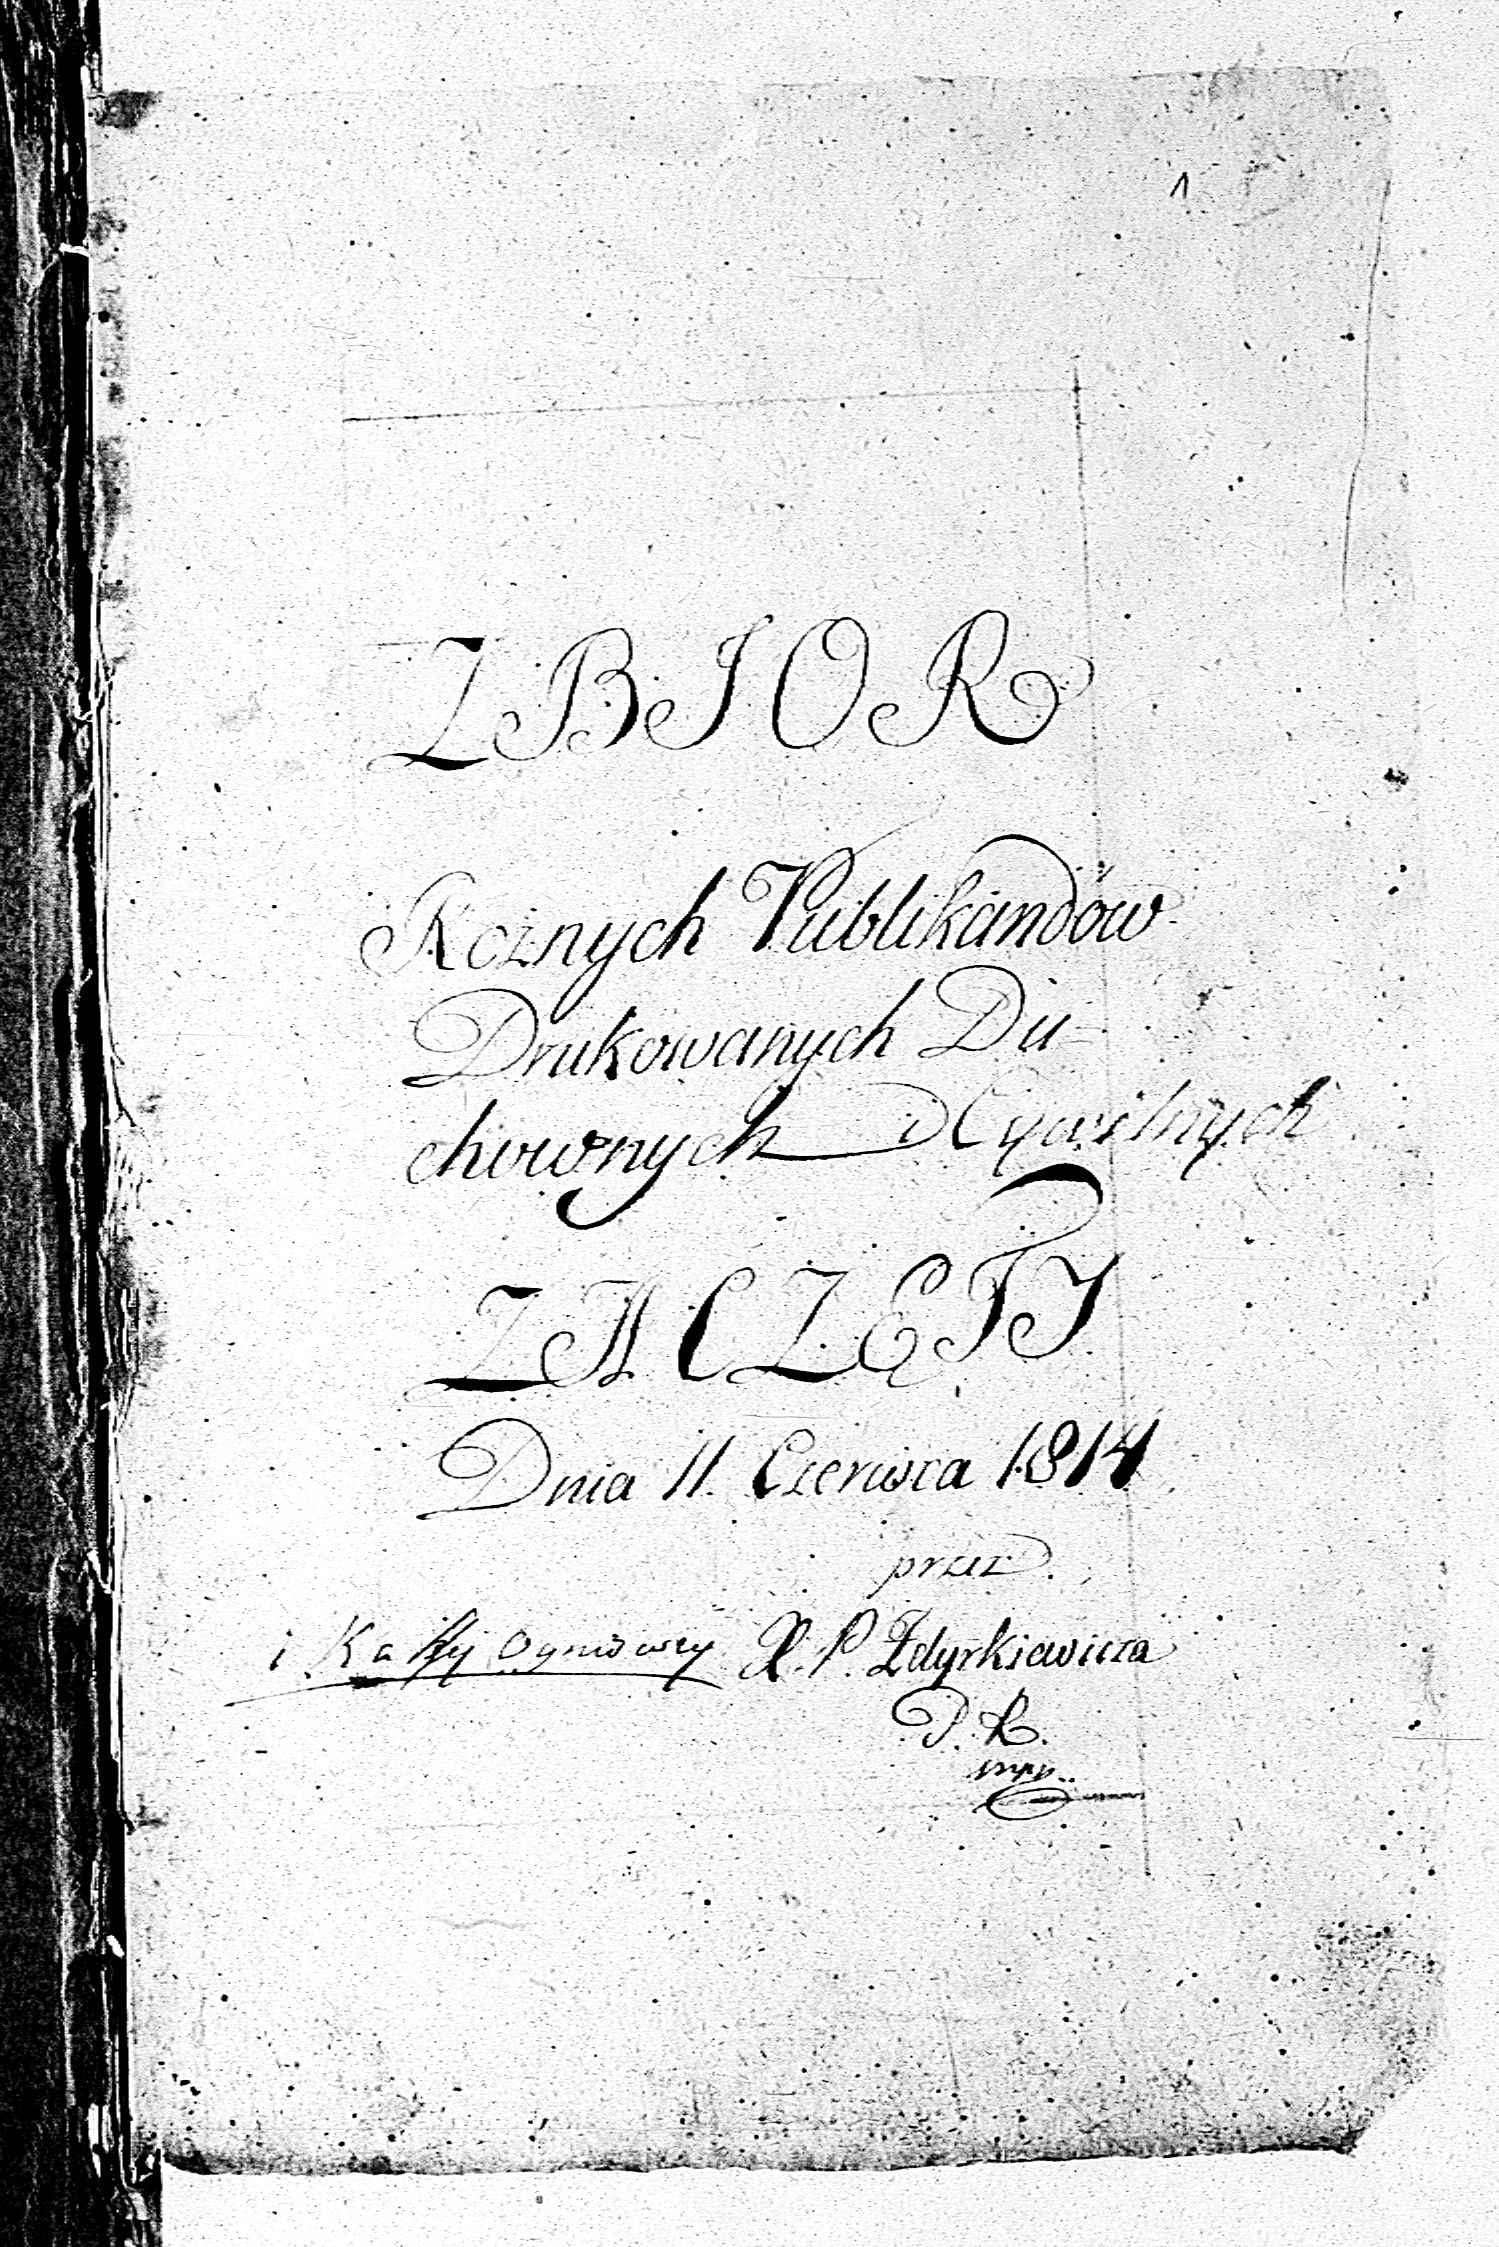 1
ZBIOR
Rcznych Publikandów
Drukowanych Du-
chownych i Cywilnych
ZACZĘTY
Dnia 11. Czerwca 1814
przez
i Kassy Ogniowey X. P. Zdyrkiewicza
P. R.
mpp.